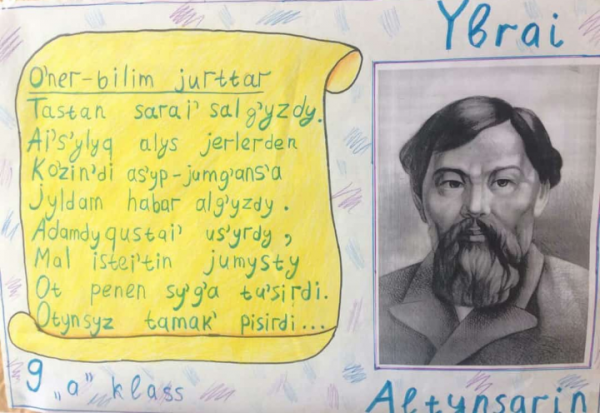 Ybrai
O'ner-bilim jurttar
Tastan sarai' salg'yzdy.
Ai's'ylyq alys jerlerden
Ko'zin'di as'yp-jumg'ans'a
Jyldam habar alg'yzdy.
Adamdy qustai' us'yrdy,
Mal istei'tin jumysty
Ot penen sy'g'a tu'sirdi.
Otynsyz tamak' pisirdi...
9 „a" klass
Altynsarin